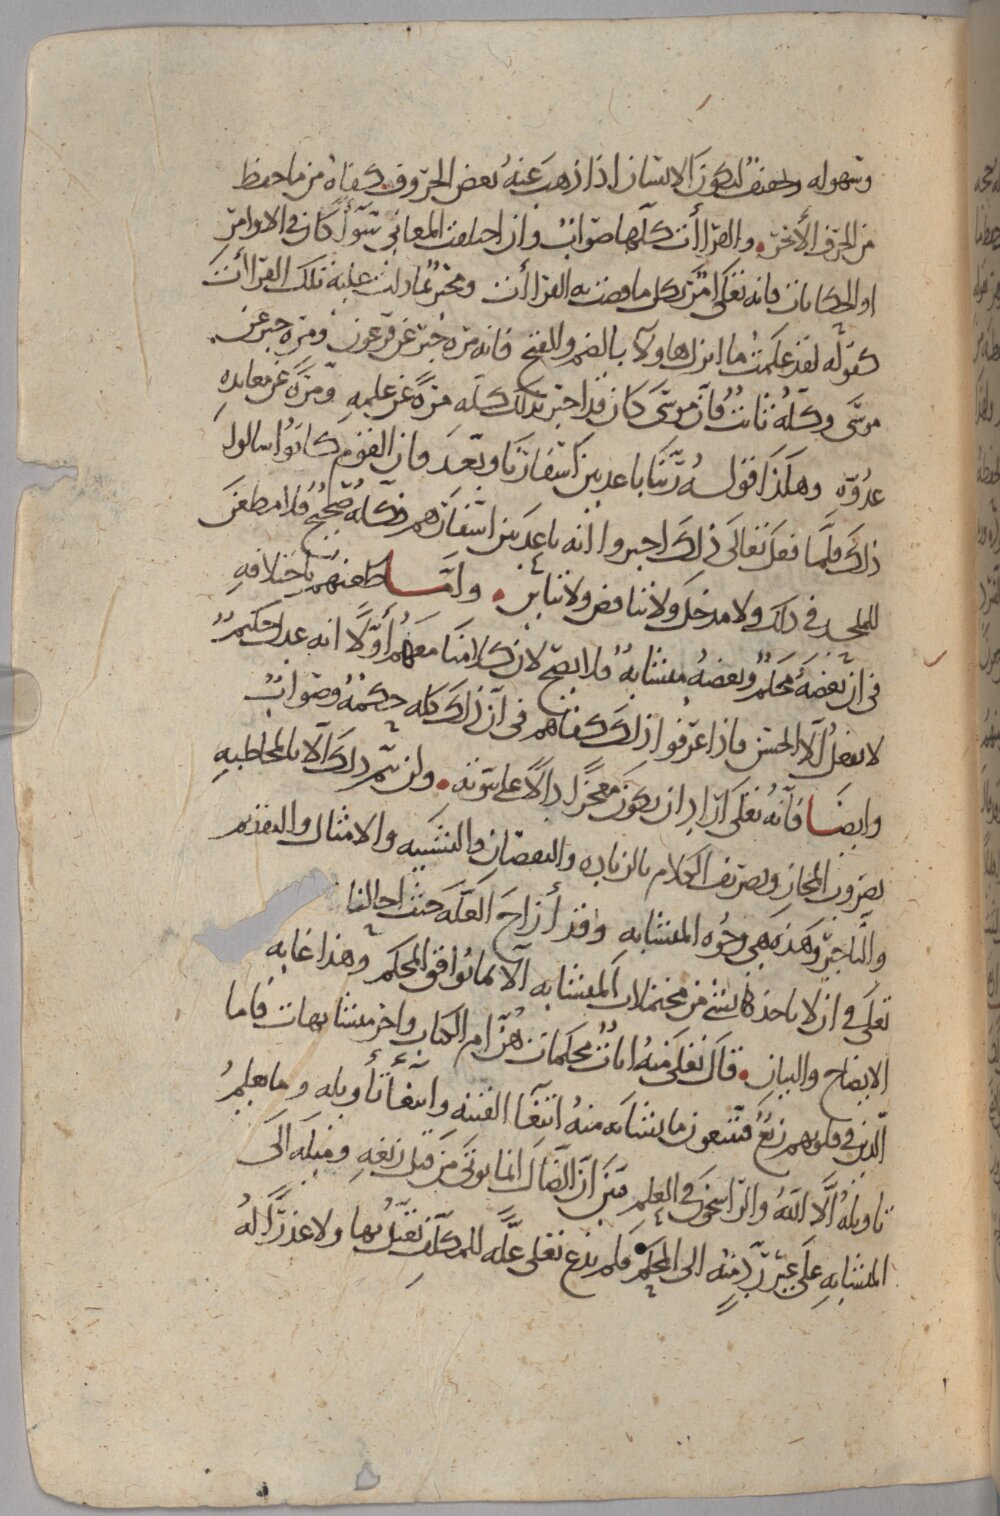 وسهوله وخفف ليكون الانسان اذا ذهب عنه بعض الحروف كفاه من ما حفظ
من الحرف الأخر. والقراأت كلها صواب وان اختلفت المعاني سوآ كان في الاوامر
او الحكايات فانه تعلى امر بكل ما وصت به القراأت ومخبر بما دلت عليه تلك القراأت
كقوله لقد علمت ما انزل هاولآ بالضم والفتح فانه مره خبر عن فرعون ومره خبر عن
موسى وكله ثابت فان موسى كان قد اخبر بذلك كله مرة عن علمه ومرة عن معانده
عدوه وهكذا قوله ربنا باعد بين اسفارنا وبعد فان القوم كانوا سالوا
ذلك فلما فعل تعالى ذلك اخبروا انه باعد بين اسفارهم فكله صحيح فلا مطعن
للملحد في ذلك ولا مدخل ولا تناقض ولا تباين. واما طعنهم باختلافه
في ان بعضه محكم وبعضه متشابه فلا يصح لان كلامنا معهم أولا انه عدل حكيم
لا يفعل الا الحسن فاذا عرفوا ذلك كفاهم في ان ذلك كله حكمه وصواب
وايضا فانه تعلى اراد ان يكون معجزا دالا على نبوته. ولن يتم ذلك الا بالمخاطبه
بضروب المجاز وتصريف الكلام بالزياده والنقصان والتشبيه والامثال والتقديم
والتاخير وهذه هي وجوه المتشابه وقد أزاح العله حيث احالنا
تعلى في ان لا ناخذ بشي من محتملات المتشابه الا بما يوافق المحكم وهذا غايه
الايضاح والبيان. قال تعلى منه ايات محكمات هن ام الكتاب واخر متشابهات فاما
الذين في قلوبهم زيغ فيتبعون ما تشابه منه ابتغا الفتنه وابتغآ تأويله وما يعلم
تاويله الا الله والراسخون في العلم فبين ان الضال انما يوتى من قبل زيغه وميله الى
المتشابه على غير رد منه الى المحكم فلم يدع تعلى عله للمكلف يتعلل بها ولا عذرا له